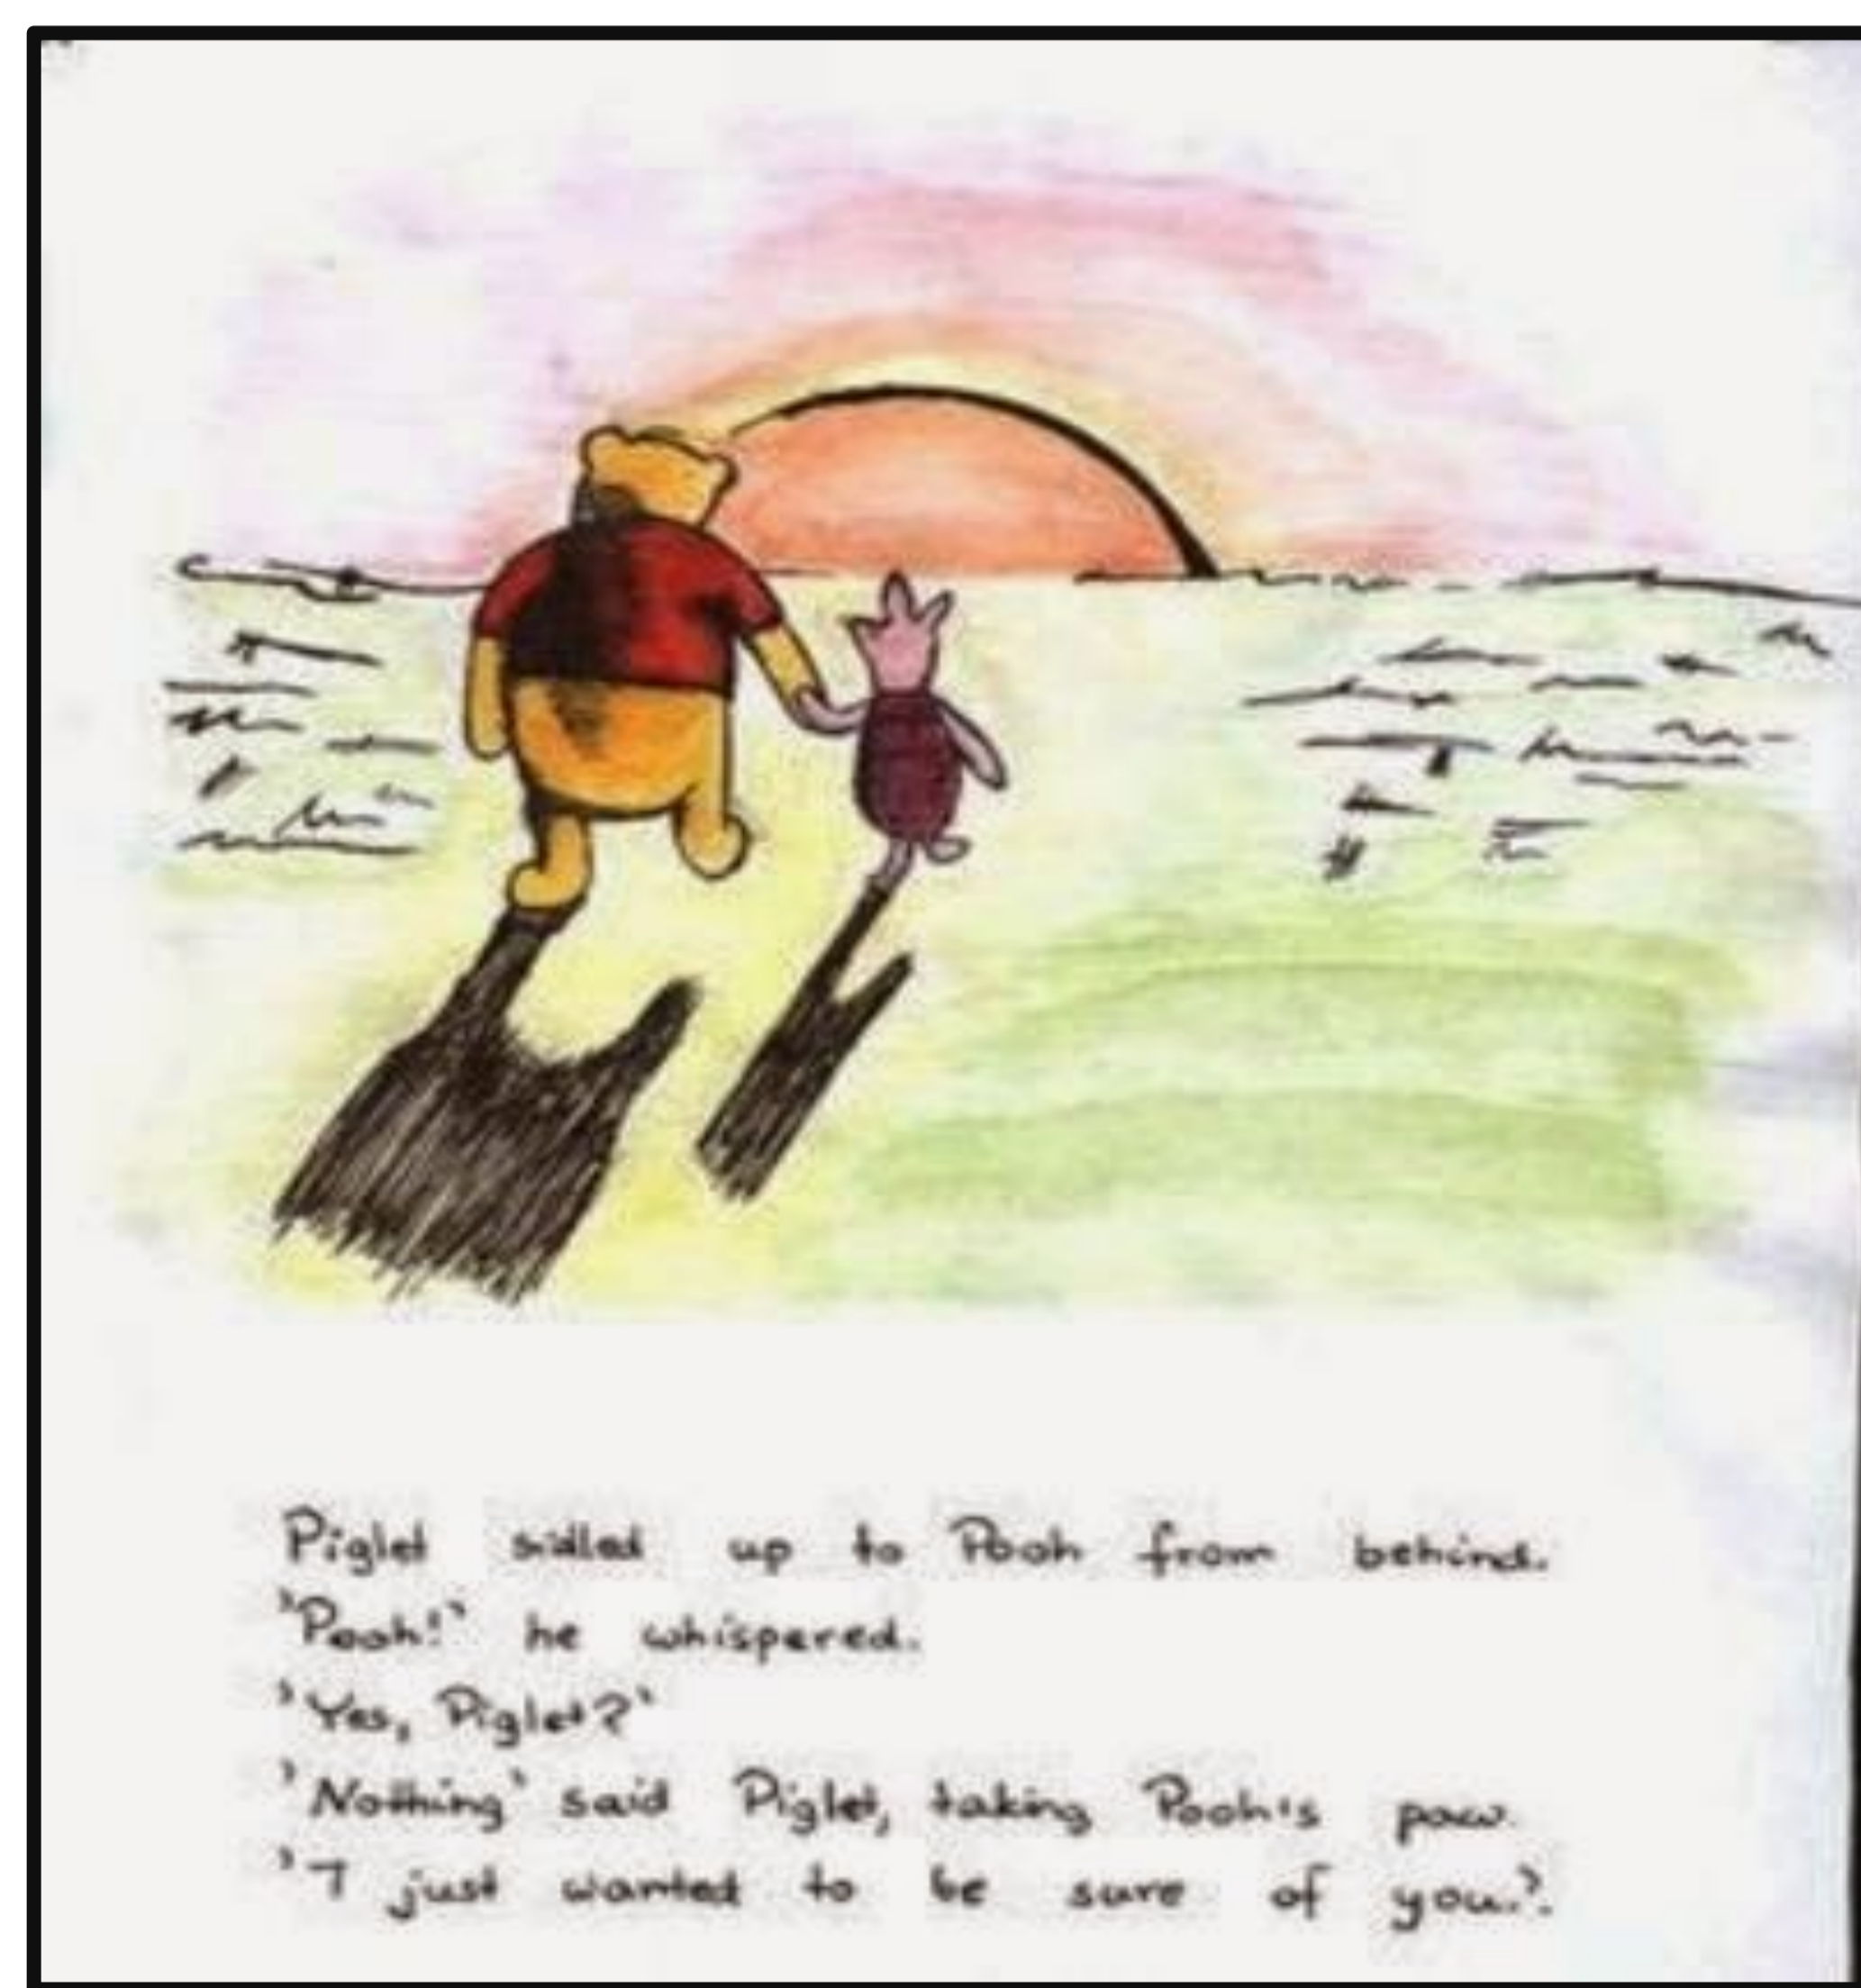 Piglet sidled up to Pooh from behind.
'Pooh!' he whispered.
'Yes, Piglet?'
'Nothing' said Piglet, taking Pooh's paw.
'I just wanted to be sure of you.'.